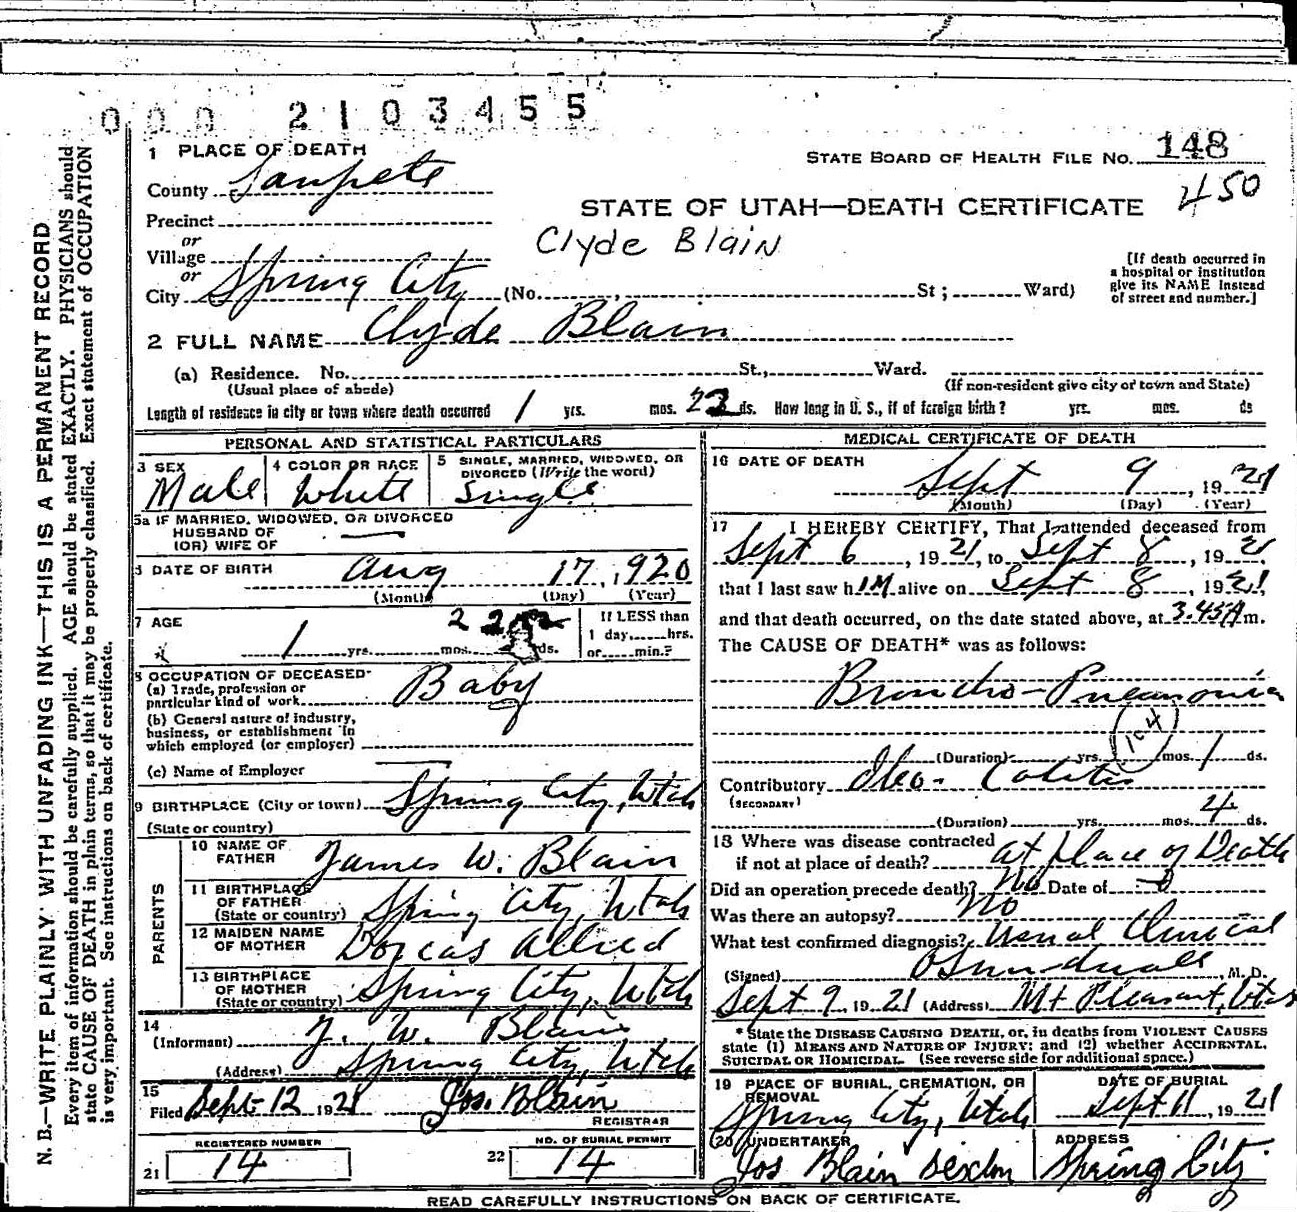 000 2103455
1 PLACE OF DEATH
STATE BOARD OF HEALTH FILE NO. 148
450
County Sanpete
STATE OF UTAH—DEATH CERTIFICATE
Precinct
or
Village
Clyde Blain
or
City Spring City (No. St; Ward)
[If death occurred in
a hospital or institution
give its NAME instead
of street and number.]
2 FULL NAME Clyde Blain
(a) Residence. No. St., Ward.
(Usual place of abode) (If non-resident give city or town and State)
Length of residence in city or town where death occurred 1 yrs. mos. 23 ds. How long in U. S., if of foreign birth? yrs. mos. ds
PERSONAL AND STATISTICAL PARTICULARS
3 SEX Male
4 COLOR OR RACE White
5 SINGLE, MARRIED, WIDOWED, OR
DIVORCED (Write the word)
Single
5a IF MARRIED, WIDOWED, OR DIVORCED
HUSBAND OF
(OR) WIFE OF
DATE OF BIRTH Aug 17, 1920
(Month) (Day) (Year)
7 AGE 1 yrs. mos. ds.
If LESS than
1 day, hrs.
or min.?
8 OCCUPATION OF DECEASED
(a) Trade, profession or
particular kind of work Baby
(b) General nature of industry,
business, or establishment in
which employed (or employer)
(c) Name of Employer
9 BIRTHPLACE (City or town) Spring City, Utah
(State or country)
PARENTS
10 NAME OF
FATHER James W. Blain
11 BIRTHPLACE
OF FATHER
(State or country) Spring City, Utah
12 MAIDEN NAME
OF MOTHER Dorcas Allred
13 BIRTHPLACE
OF MOTHER
(State or country) Spring City, Utah
14
(Informant) J. W. Blain
(Address) Spring City, Utah
15
Filed Sept 12 1921 Jos. Blain
REGISTRAR
REGISTERED NUMBER
21 14
NO. OF BURIAL PERMIT
22 14
MEDICAL CERTIFICATE OF DEATH
16 DATE OF DEATH
Sept 9, 1921
(Month) (Day) (Year)
17 I HEREBY CERTIFY, That I attended deceased from
Sept 6, 1921, to Sept 8, 1921
that I last saw him alive on Sept 8, 1921,
and that death occurred, on the date stated above, at 3.45A m.
The CAUSE OF DEATH* was as follows:
Broncho-Pneumonia
104
(Duration) yrs. mos. 1 ds.
Contributory Ileo-Colitis
(SECONDARY)
(Duration) yrs. mos. 4 ds.
18 Where was disease contracted
if not at place of death? at place of Death
Did an operation precede death? No Date of
Was there an autopsy? No
What test confirmed diagnosis? Usual Clinical
(Signed) , M. D.
Sept 9 1921 (Address) Mt Pleasant, Utah
* State the DISEASE CAUSING DEATH, or, in deaths from VIOLENT CAUSES
state (1) MEANS AND NATURE OF INJURY; and (2) whether ACCIDENTAL,
SUICIDAL OR HOMICIDAL. (See reverse side for additional space.)
19 PLACE OF BURIAL, CREMATION, OR
REMOVAL
Spring City, Utah
DATE OF BURIAL
Sept 11, 1921
20 UNDERTAKER
Jos Blain Sexton
ADDRESS
Spring City
READ CAREFULLY INSTRUCTIONS ON BACK OF CERTIFICATE.
N. B.—WRITE PLAINLY WITH UNFADING INK—THIS IS A PERMANENT RECORD
Every item of information should be carefully supplied. AGE should be stated EXACTLY. PHYSICIANS should
state CAUSE OF DEATH in plain terms, so that it may be properly classified. Exact statement of OCCUPATION
is very important. See instructions on back of certificate.